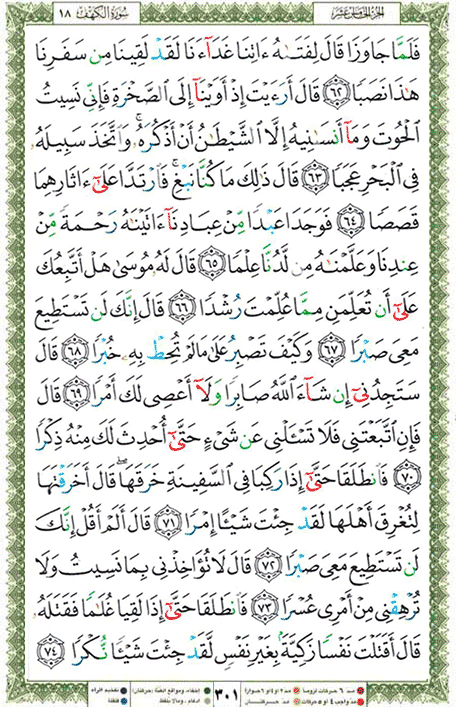 سورة الكهف ١٨
فَلَمَّا جَاوَزَا قَالَ لِفَتَىٰهُ ءَاتِنَا غَدَآءَنَا لَقَدْ لَقِينَا مِن سَفَرِنَا
هَٰذَا نَصَبًا ٦٢ قَالَ أَرَءَيْتَ إِذْ أَوَيْنَآ إِلَى ٱلصَّخْرَةِ فَإِنِّى نَسِيتُ
ٱلْحُوتَ وَمَآ أَنسَىٰنِيهُ إِلَّا ٱلشَّيْطَٰنُ أَنْ أَذْكُرَهُۥ ۚ وَٱتَّخَذَ سَبِيلَهُۥ
فِى ٱلْبَحْرِ عَجَبًا ٦٣ قَالَ ذَٰلِكَ مَا كُنَّا نَبْغِ ۚ فَٱرْتَدَّا عَلَىٰٓ ءَاثَارِهِمَا
قَصَصًا ٦٤ فَوَجَدَا عَبْدًا مِّنْ عِبَادِنَآ ءَاتَيْنَٰهُ رَحْمَةً مِّنْ
عِندِنَا وَعَلَّمْنَٰهُ مِن لَّدُنَّا عِلْمًا ٦٥ قَالَ لَهُۥ مُوسَىٰ هَلْ أَتَّبِعُكَ
عَلَىٰٓ أَن تُعَلِّمَنِ مِمَّا عُلِّمْتَ رُشْدًا ٦٦ قَالَ إِنَّكَ لَن تَسْتَطِيعَ
مَعِىَ صَبْرًا ٦٧ وَكَيْفَ تَصْبِرُ عَلَىٰ مَا لَمْ تُحِطْ بِهِۦ خُبْرًا ٦٨ قَالَ
سَتَجِدُنِىٓ إِن شَآءَ ٱللَّهُ صَابِرًا وَلَآ أَعْصِى لَكَ أَمْرًا ٦٩ قَالَ
فَإِنِ ٱتَّبَعْتَنِى فَلَا تَسْـَٔلْنِى عَن شَىْءٍ حَتَّىٰٓ أُحْدِثَ لَكَ مِنْهُ ذِكْرًا
٧٠ فَٱنطَلَقَا حَتَّىٰٓ إِذَا رَكِبَا فِى ٱلسَّفِينَةِ خَرَقَهَا ۖ قَالَ أَخَرَقْتَهَا
لِتُغْرِقَ أَهْلَهَا لَقَدْ جِئْتَ شَيْـًٔا إِمْرًا ٧١ قَالَ أَلَمْ أَقُلْ إِنَّكَ
لَن تَسْتَطِيعَ مَعِىَ صَبْرًا ٧٢ قَالَ لَا تُؤَاخِذْنِى بِمَا نَسِيتُ وَلَا
تُرْهِقْنِى مِنْ أَمْرِى عُسْرًا ٧٣ فَٱنطَلَقَا حَتَّىٰٓ إِذَا لَقِيَا غُلَٰمًا فَقَتَلَهُۥ
قَالَ أَقَتَلْتَ نَفْسًا زَكِيَّةًۢ بِغَيْرِ نَفْسٍ لَّقَدْ جِئْتَ شَيْـًٔا نُّكْرًا ٧٤
٣٠١